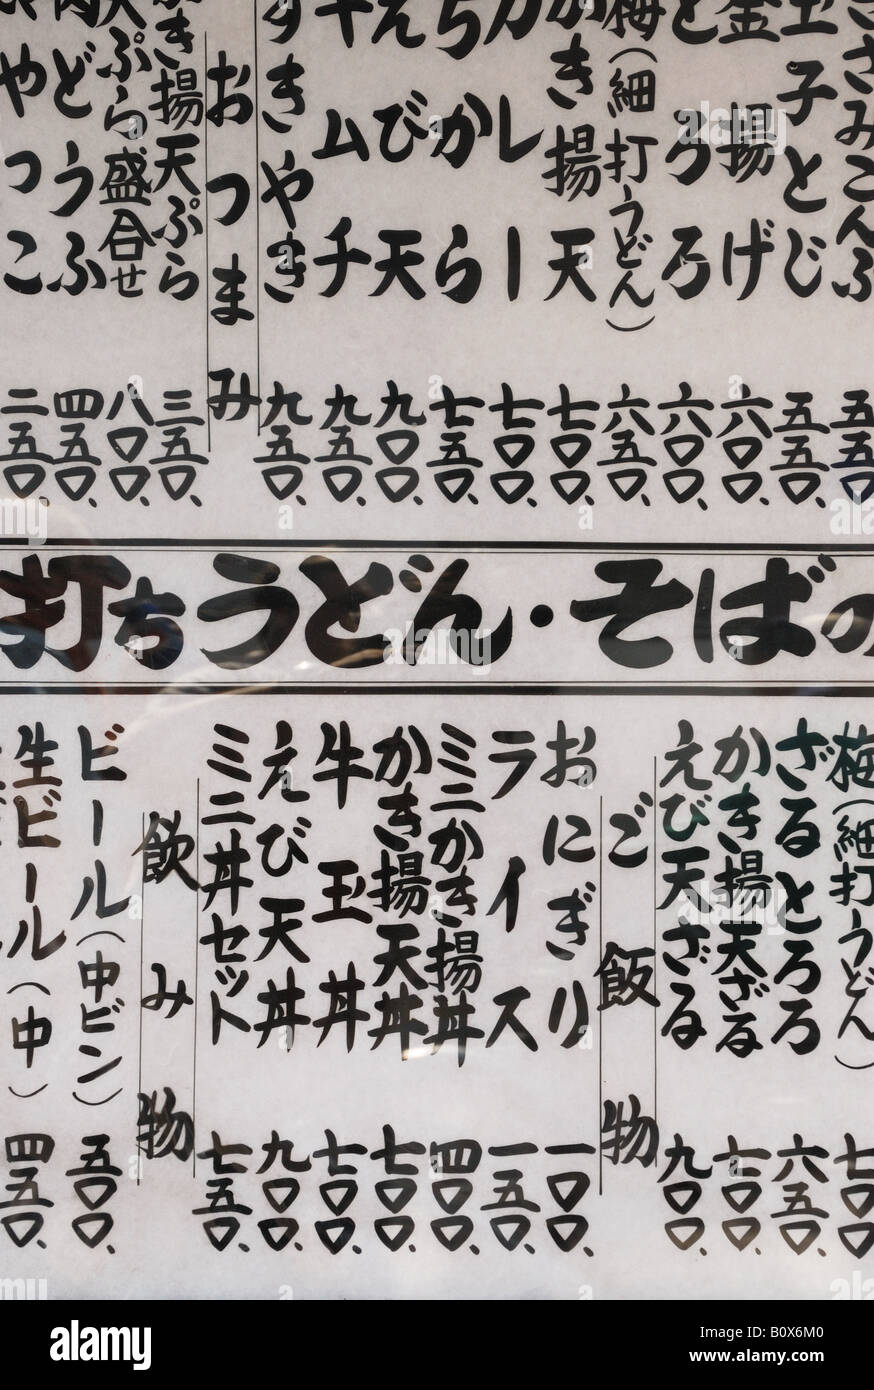 ささみこんぶ 五五〇、
玉子とじ 五五〇、
金揚げ 六〇〇、
とろろ 六〇〇、
梅(細打うどん) 六五〇、
かき揚天 七〇〇、
カレー 七〇〇、
ちから 七五〇、
えび天 九〇〇、
キムチ 九五〇、
すきやき 九五〇、
おつまみ
かき揚天ぷら 三五〇、
天ぷら盛合せ 八〇〇、
肉どうふ 四五〇、
やっこ 二五〇、
打ちうどん・そばの
梅(細打うどん) 七〇〇、
ざるとろろ 六五〇、
かき揚天ざる 七〇〇、
えび天ざる 九〇〇、
ご飯物
おにぎり 一〇〇、
ライス 一五〇、
ミニかき揚丼 四〇〇、
かき揚天丼 七〇〇、
牛玉丼 七〇〇、
えび天丼 九〇〇、
ミニ丼セット 七五〇、
飲み物
ビール(中ビン) 五〇〇、
生ビール(中) 四五〇、
alamy
Image ID: B0X6M0
www.alamy.com